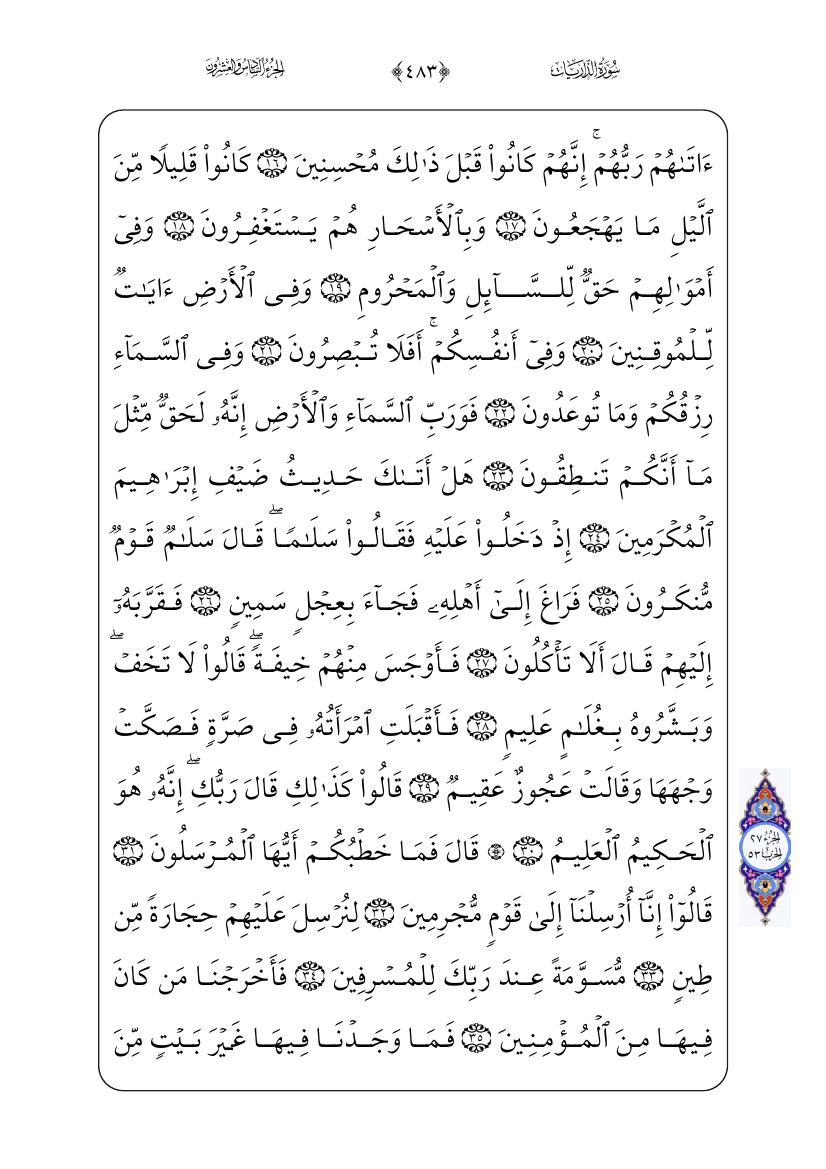 سُورَةُ الذَّارِيَاتِ ﴿٤٨٣﴾ الجُزْءُ السَّادِسُ وَالعِشْرُونَ
ءَاتَىٰهُمۡ رَبُّهُمۡۚ إِنَّهُمۡ كَانُوا۟ قَبۡلَ ذَٰلِكَ مُحۡسِنِينَ ١٦ كَانُوا۟ قَلِيلًا مِّنَ
ٱلَّيۡلِ مَا يَهۡجَعُونَ ١٧ وَبِٱلۡأَسۡحَارِ هُمۡ يَسۡتَغۡفِرُونَ ١٨ وَفِىٓ
أَمۡوَٰلِهِمۡ حَقٌّ لِّلسَّآئِلِ وَٱلۡمَحۡرُومِ ١٩ وَفِى ٱلۡأَرۡضِ ءَايَٰتٌ
لِّلۡمُوقِنِينَ ٢٠ وَفِىٓ أَنفُسِكُمۡۚ أَفَلَا تُبۡصِرُونَ ٢١ وَفِى ٱلسَّمَآءِ
رِزۡقُكُمۡ وَمَا تُوعَدُونَ ٢٢ فَوَرَبِّ ٱلسَّمَآءِ وَٱلۡأَرۡضِ إِنَّهُۥ لَحَقٌّ مِّثۡلَ
مَآ أَنَّكُمۡ تَنطِقُونَ ٢٣ هَلۡ أَتَىٰكَ حَدِيثُ ضَيۡفِ إِبۡرَٰهِيمَ
ٱلۡمُكۡرَمِينَ ٢٤ إِذۡ دَخَلُوا۟ عَلَيۡهِ فَقَالُوا۟ سَلَٰمًاۖ قَالَ سَلَٰمٌ قَوۡمٌ
مُّنكَرُونَ ٢٥ فَرَاغَ إِلَىٰٓ أَهۡلِهِۦ فَجَآءَ بِعِجۡلٍ سَمِينٍ ٢٦ فَقَرَّبَهُۥٓ
إِلَيۡهِمۡ قَالَ أَلَا تَأۡكُلُونَ ٢٧ فَأَوۡجَسَ مِنۡهُمۡ خِيفَةًۖ قَالُوا۟ لَا تَخَفۡۖ
وَبَشَّرُوهُ بِغُلَٰمٍ عَلِيمٍ ٢٨ فَأَقۡبَلَتِ ٱمۡرَأَتُهُۥ فِى صَرَّةٍ فَصَكَّتۡ
وَجۡهَهَا وَقَالَتۡ عَجُوزٌ عَقِيمٌ ٢٩ قَالُوا۟ كَذَٰلِكِ قَالَ رَبُّكِۖ إِنَّهُۥ هُوَ
ٱلۡحَكِيمُ ٱلۡعَلِيمُ ٣٠ ۞ قَالَ فَمَا خَطۡبُكُمۡ أَيُّهَا ٱلۡمُرۡسَلُونَ ٣١
الجزء ٢٧
الحزب ٥٣
قَالُوٓا۟ إِنَّآ أُرۡسِلۡنَآ إِلَىٰ قَوۡمٍ مُّجۡرِمِينَ ٣٢ لِنُرۡسِلَ عَلَيۡهِمۡ حِجَارَةً مِّن
طِينٍ ٣٣ مُّسَوَّمَةً عِندَ رَبِّكَ لِلۡمُسۡرِفِينَ ٣٤ فَأَخۡرَجۡنَا مَن كَانَ
فِيهَا مِنَ ٱلۡمُؤۡمِنِينَ ٣٥ فَمَا وَجَدۡنَا فِيهَا غَيۡرَ بَيۡتٍ مِّنَ